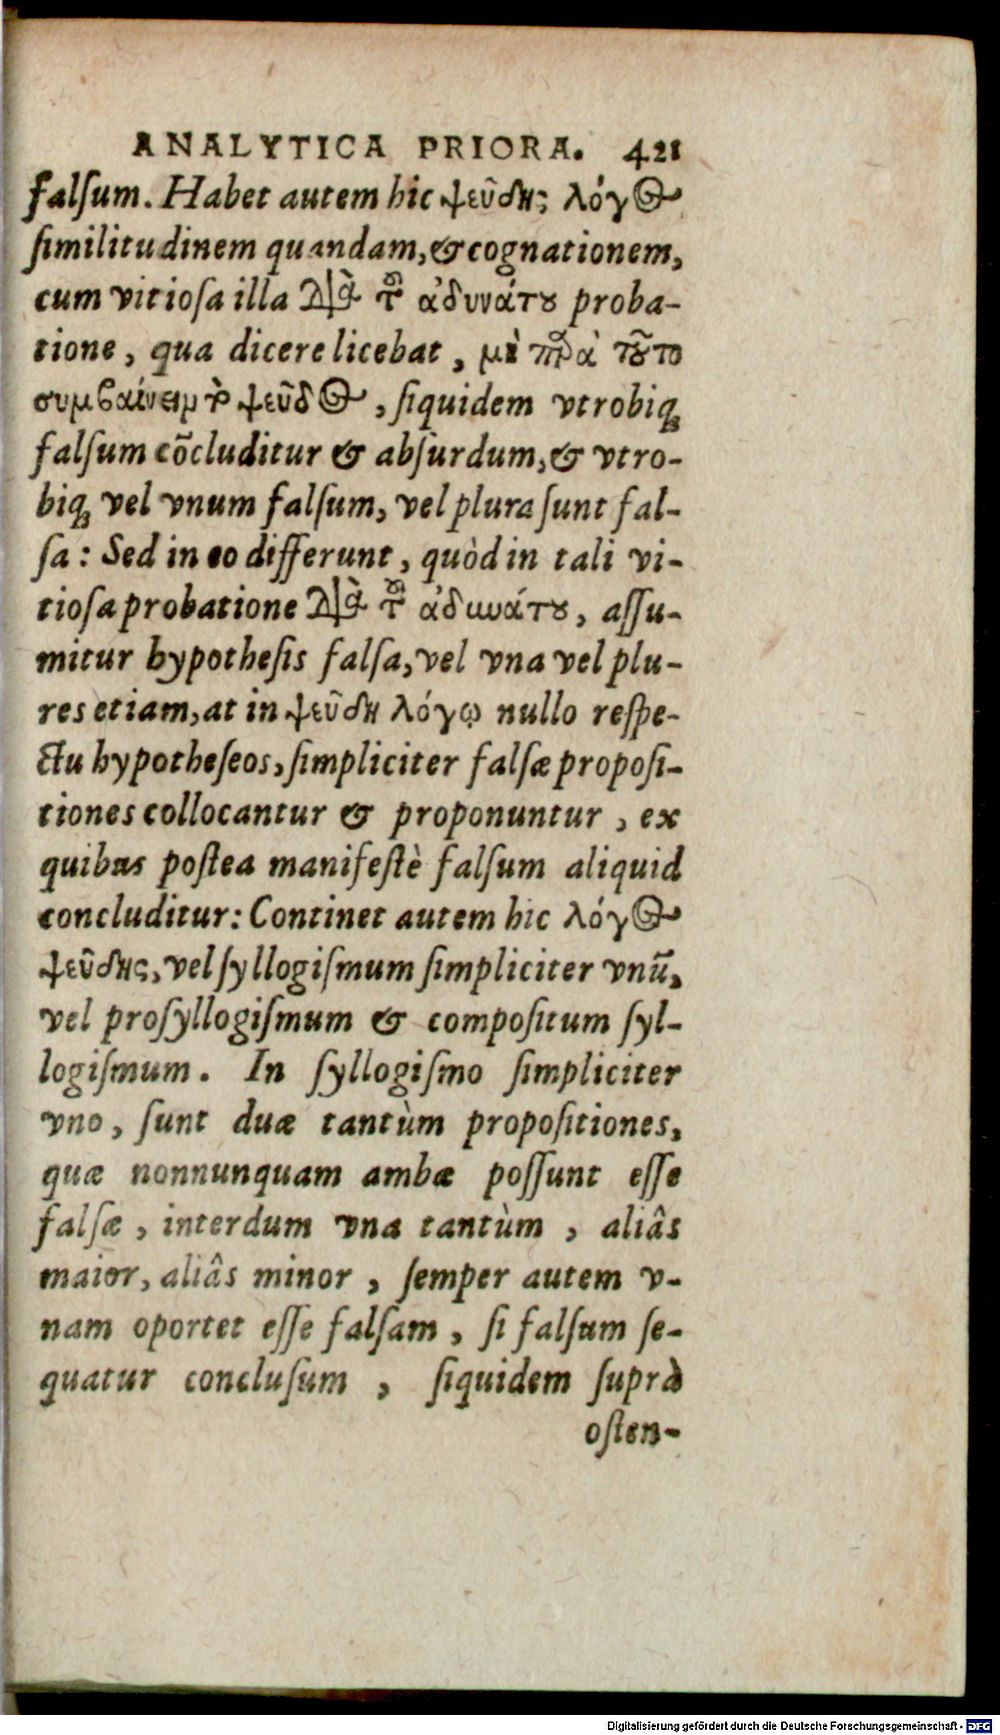 ANALYTICA PRIORA. 421
falſum. Habet autem hic ψευδὴς λόγος
ſimilitudinem quandam, & cognationem,
cum vitioſa illa διὰ τοῦ ἀδυνάτου proba-
tione, qua dicere licebat, μὴ παρὰ τοῦτο
συμβαίνειν τὸ ψεῦδος, ſiquidem vtrobiq;
falſum cõcluditur & abſurdum, & vtro-
biq; vel vnum falſum, vel plura ſunt fal-
ſa: Sed in eo differunt, quòd in tali vi-
tioſa probatione διὰ τοῦ ἀδυνάτου, aſſu-
mitur hypotheſis falſa, vel vna vel plu-
res etiam, at in ψευδῆ λόγῳ nullo reſpe-
ctu hypotheſeos, ſimpliciter falſæ propoſi-
tiones collocantur & proponuntur, ex
quibus poſtea manifeſtè falſum aliquid
concluditur: Continet autem hic λόγος
ψευδὴς, vel ſyllogiſmum ſimpliciter vnũ,
vel proſyllogiſmum & compoſitum ſyl-
logiſmum. In ſyllogiſmo ſimpliciter
vno, ſunt duæ tantùm propoſitiones,
quæ nonnunquam ambæ poſſunt eſſe
falſæ, interdum vna tantùm, aliâs
maior, aliâs minor, ſemper autem v-
nam oportet eſſe falſam, ſi falſum ſe-
quatur concluſum, ſiquidem ſuprà
oſten-
Digitalisierung gefördert durch die Deutsche Forschungsgemeinschaft - DFG